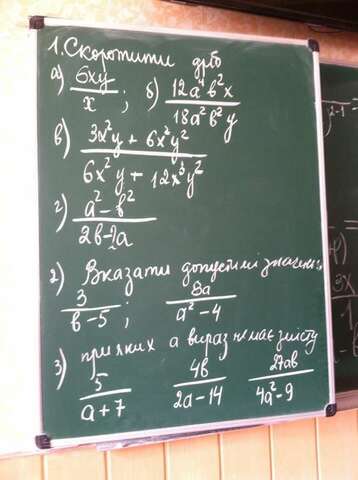 1. Скоротити дріб
а) 6xy/x ; б) 12a⁴b²x/18a²b²y
в) 3x²y + 6x²y²/6x²y + 12x³y²
г) a² – b²/2b–2a
2) Вказати допустимі значення
3/b–5 ; 8a/a²–4
3) при яких а вираз не має змісту
5/a+7 4b/2a–14 27ab/4a²–9